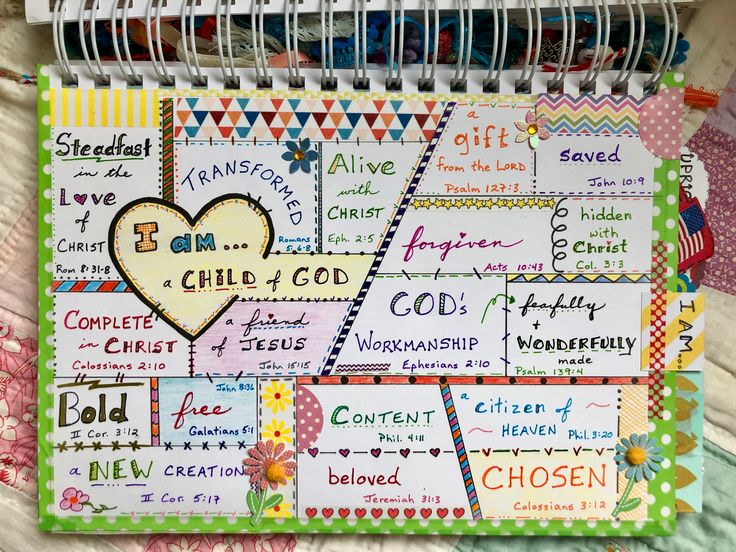 Steadfast
in the
Love
of
CHRIST
Rom 8:31-8
TRANSFORMED
Romans
5:6-8
Alive
with
CHRIST
Eph. 2:5
a
gift
from the LORD
Psalm 127:3.
saved
John 10:9
I am...
a CHILD of GOD
forgiven
Acts 10:43
hidden
with
Christ
Col. 3:3
COMPLETE
in CHRIST
Colossians 2:10
a friend
of JESUS
John 15:15
GOD's
WORKMANSHIP
Ephesians 2:10
fearfully
+
WONDERFULLY
made
Psalm 139:4
I AM...
Bold
II Cor. 3:12
John 8:36
free
Galatians 5:1
a NEW CREATION
II Cor. 5:17
CONTENT
Phil. 4:11
beloved
Jeremiah 31:3
a citizen of
HEAVEN Phil. 3:20
CHOSEN
Colossians 3:12